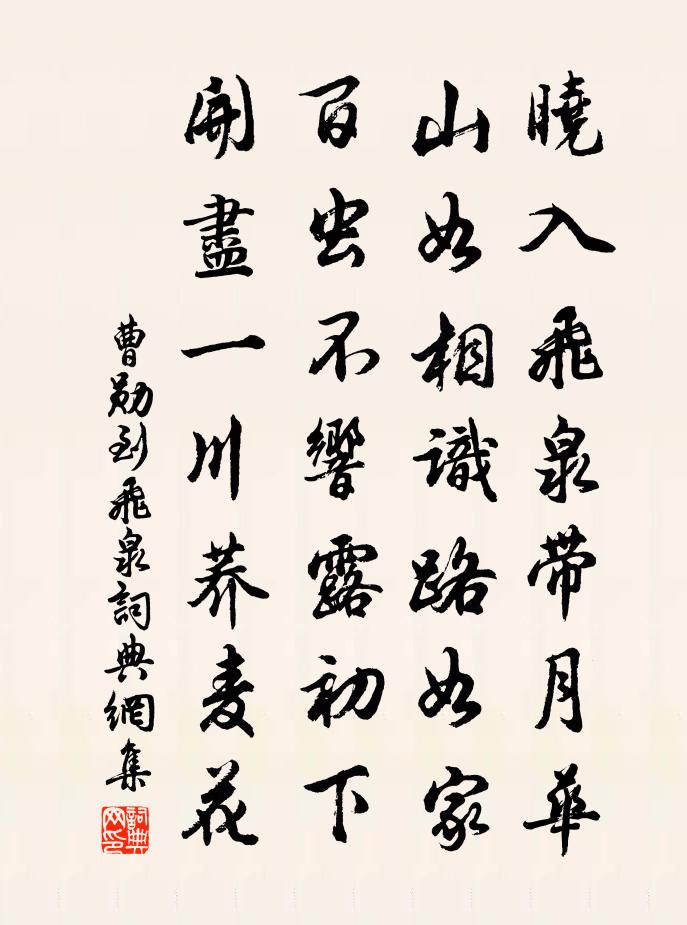 曉入飛泉帶月華
山如相識路如家
百虫不響露初下
開盡一川荞麦花
曹勛到飛泉詞典網集
詞典網印